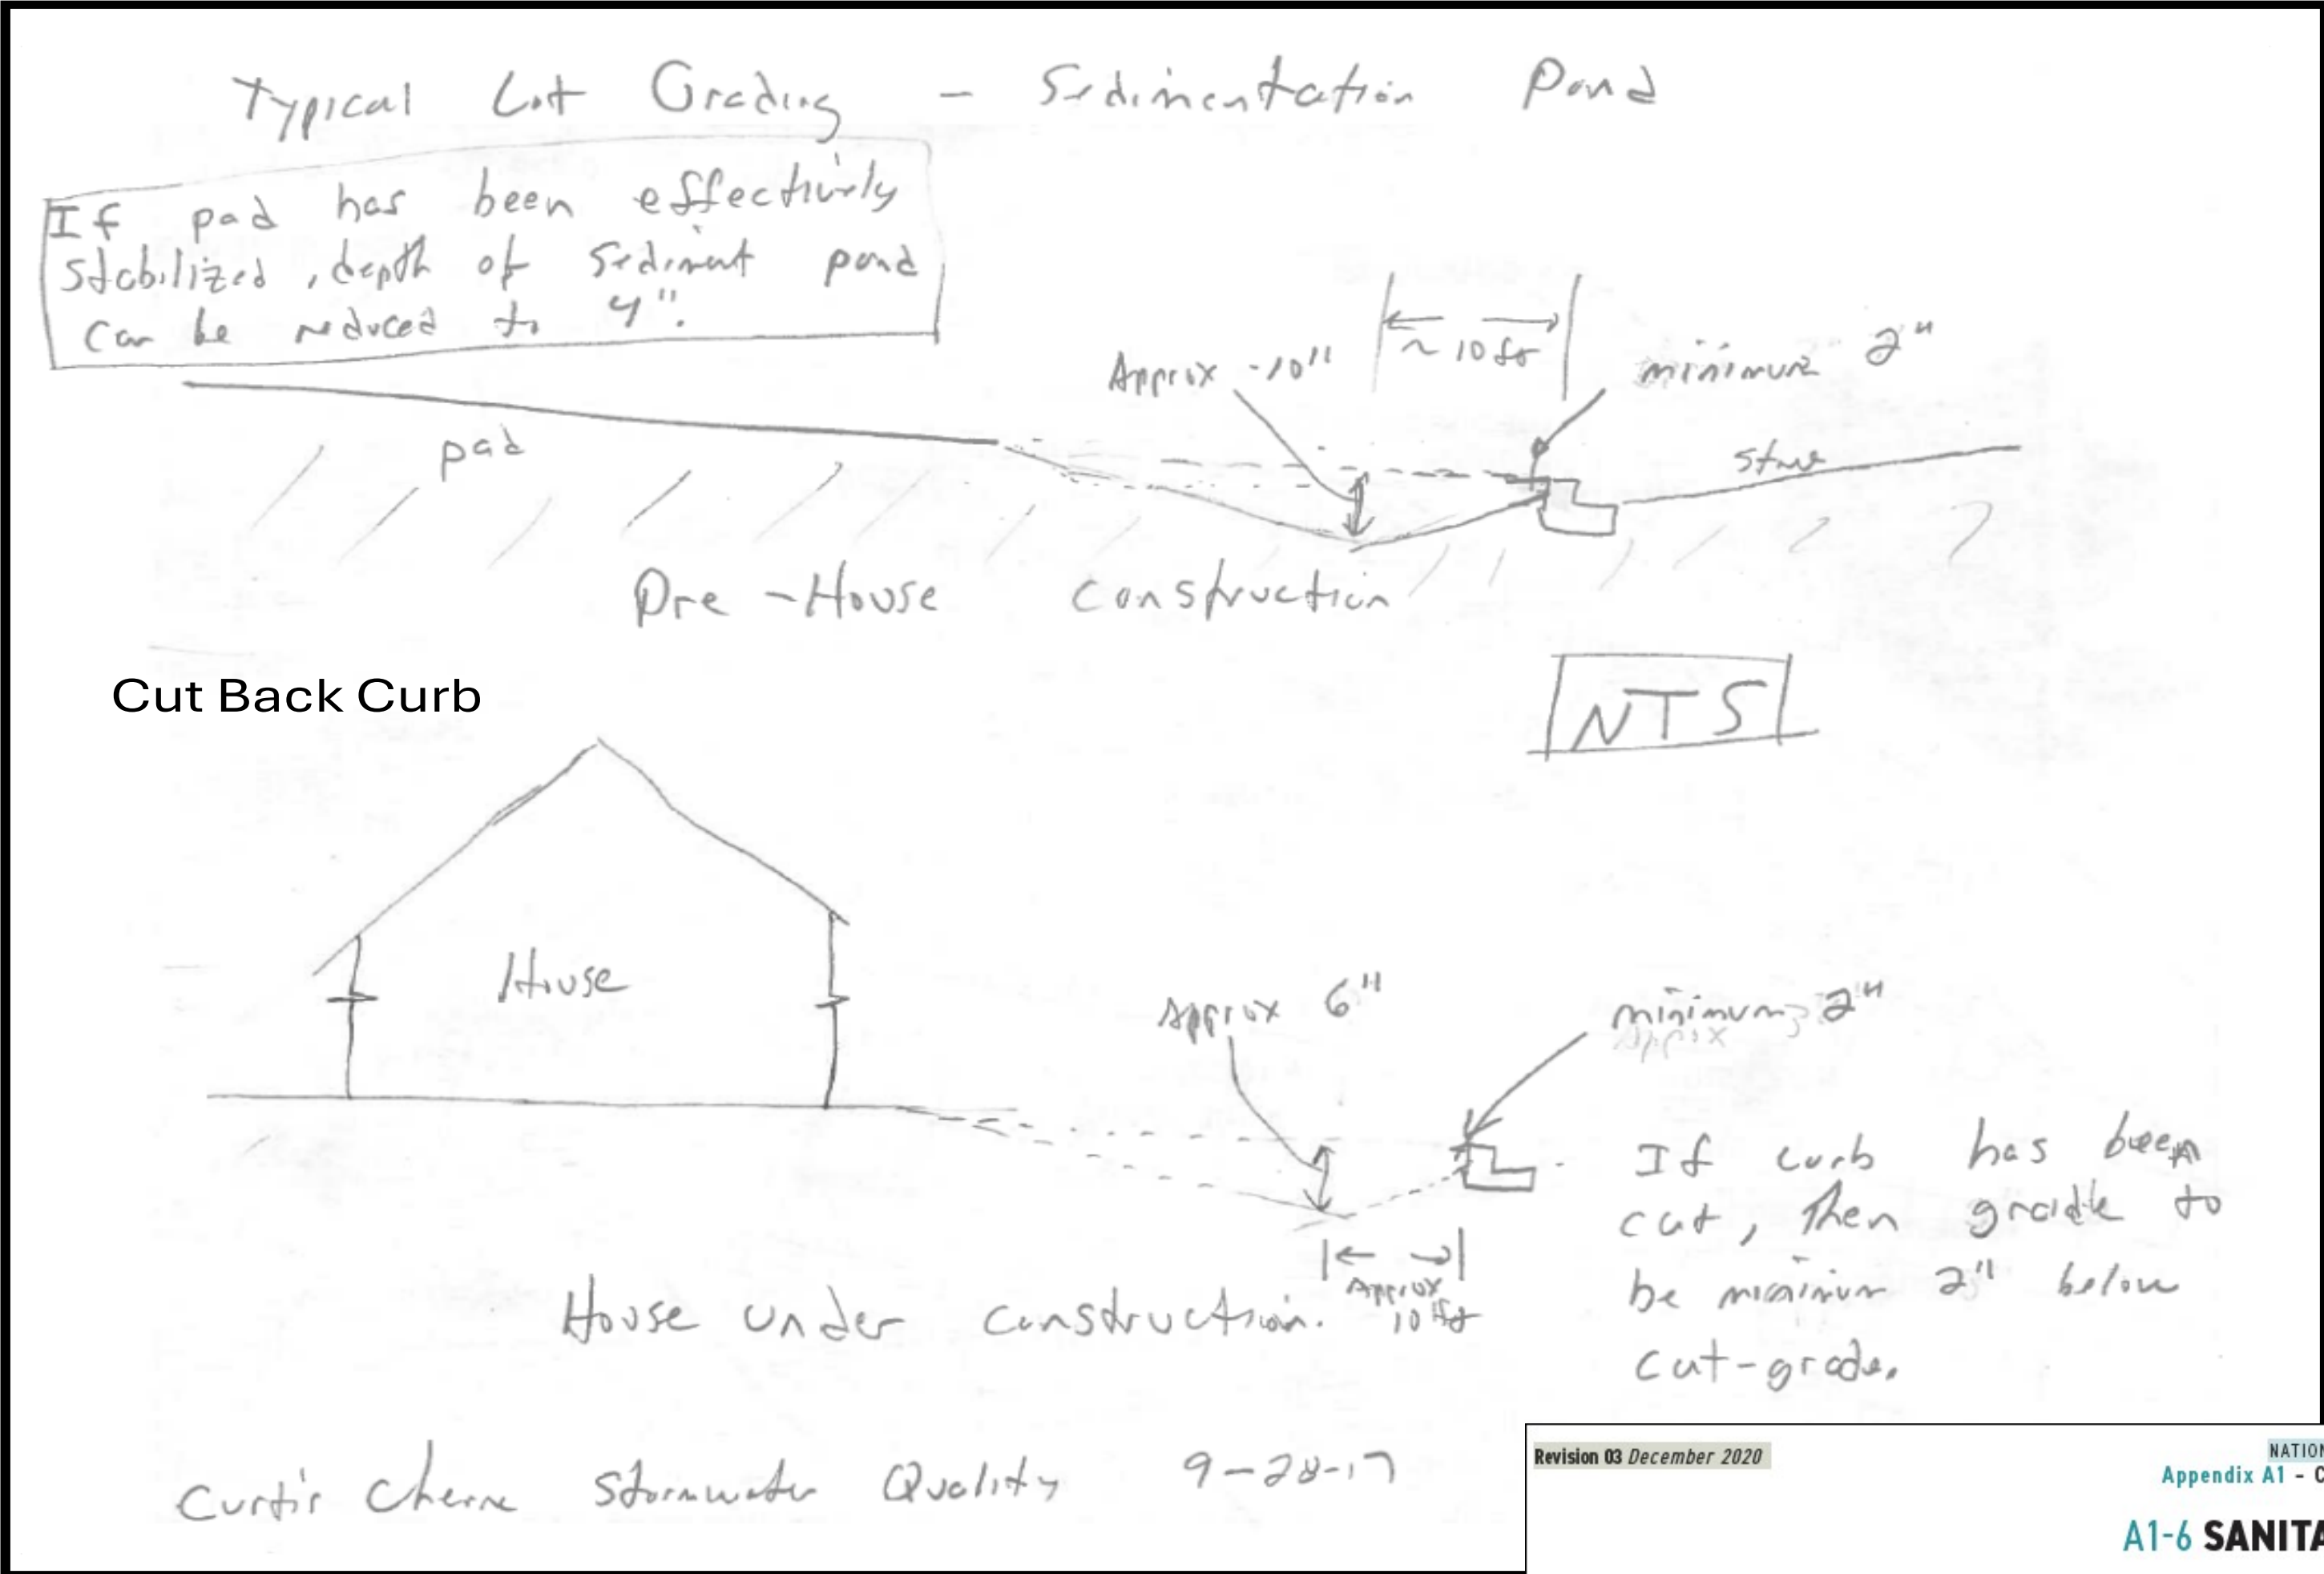 Typical Lot Grading - Sedimentation Pond
If pad has been effectively
stabilized, depth of sediment pond
can be reduced to 4".
~ 10 ft
Approx -10"
minimum 2"
pad
Pre-House Construction
NTS
Cut Back Curb
House
Approx 6"
minimum 2"
Approx
If curb has been
cut, then grade to
be minimum 2" below
cut-grade.
Approx
10 ft
House under construction.
Curtis Cherne Stormwater Quality 9-28-17
Revision 03 December 2020
NATION
Appendix A1 - C
A1-6 SANITA